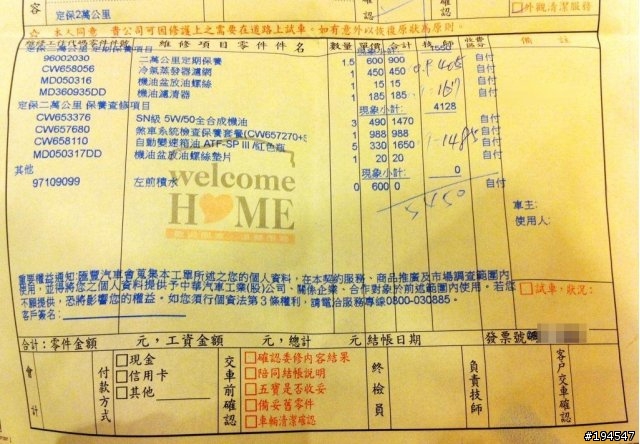 定保2萬公里
確認
確認
□外觀清潔服務
☆ 本人同意 貴公司可因修護上之需要在道路上試車。如有意外以恢復原狀為原則。
維修項目零件件名 數量 單價 合計 技師 收費區分 備註
定保二萬公里 定期保養項目
96002030 二萬公里定期保養 1.5 600 900 自付
CW658056 冷氣蒸發器濾網 1 450 450 自付
MD050316 機油盆放油螺絲 1 15 15 自付
MD360935DD 機油濾清器 1 185 185 自付
定保二萬公里 保養查修項目 現象小計: 4128
CW653376 SN級 5W/50全合成機油 3 490 1470 自付
CW657680 煞車系統檢查保養套餐(CW657270+ 1 988 988 自付
CW658110 自動變速箱油 ATF-SP III /紅色瓶 5 330 1650 自付
MD050317DD 機油盆放油螺絲墊片 1 20 20 自付
其他 現象小計: 0
97109099 左前積水 0 600 0 自付
5450
welcome
HOME
車主:
使用人:
重要權益通知:匯豐汽車會蒐集本工單所述之您的個人資料，在本契約服務、商品推廣及市場調查範圍內
使用，並得將您之個人資料提供予中華汽車工業(股)公司、關係企業、合作對象於前述範圍內使用。若您
不願提供，恐將影響您的權益。如您須行個資法第3條權利，請電洽服務專線0800-030885.
客戶簽名:
□試車,狀況:
合計:零件金額 元,工資金額 元,總計 元 結帳日期 發票號
會計
付款方式
□現金
□信用卡
□其他
交車前確認
□確認委修內容結果
□陪同結帳說明
□五寶是否收妥
□備妥舊零件
□車輛清潔確認
終檢員
負責技師
客戶交車確認
#194547